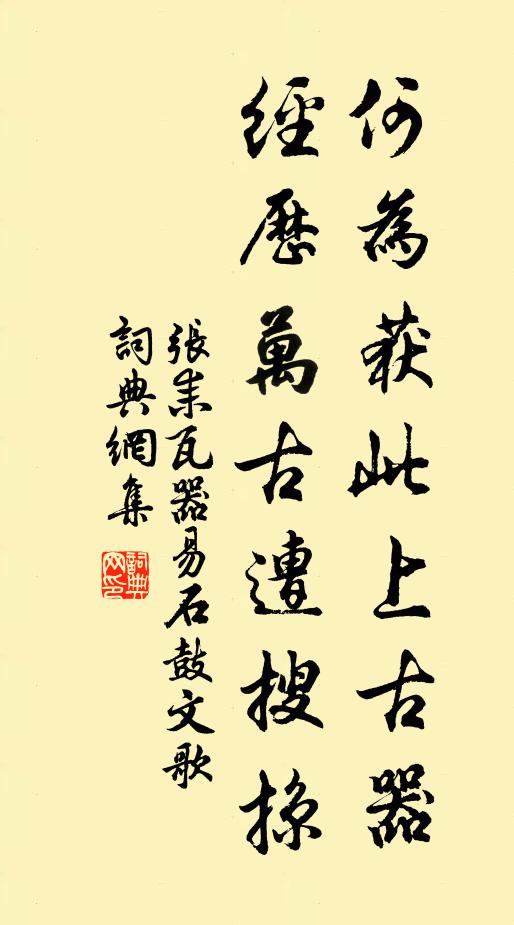 何為获此上古器
經歷萬古遭搜掠
張耒瓦器易石鼓文歌
詞典網集
詞典網印